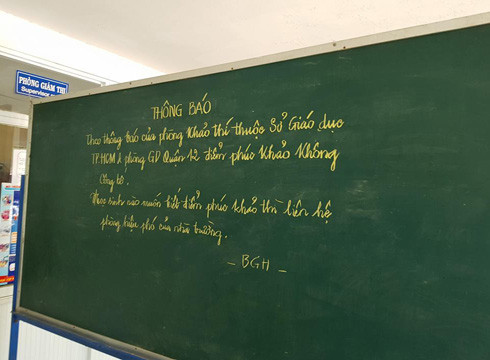 PHÒNG GIÁM THỊ
Supervisor
THÔNG BÁO
Theo thông báo của phòng Khảo thí thuộc Sở Giáo dục
TP.HCM & phòng GD Quận 12 điểm phúc khảo không
công bố.
Học sinh nào muốn biết điểm phúc khảo thì liên hệ
phòng hiệu phó của nhà trường.
_ BGH _